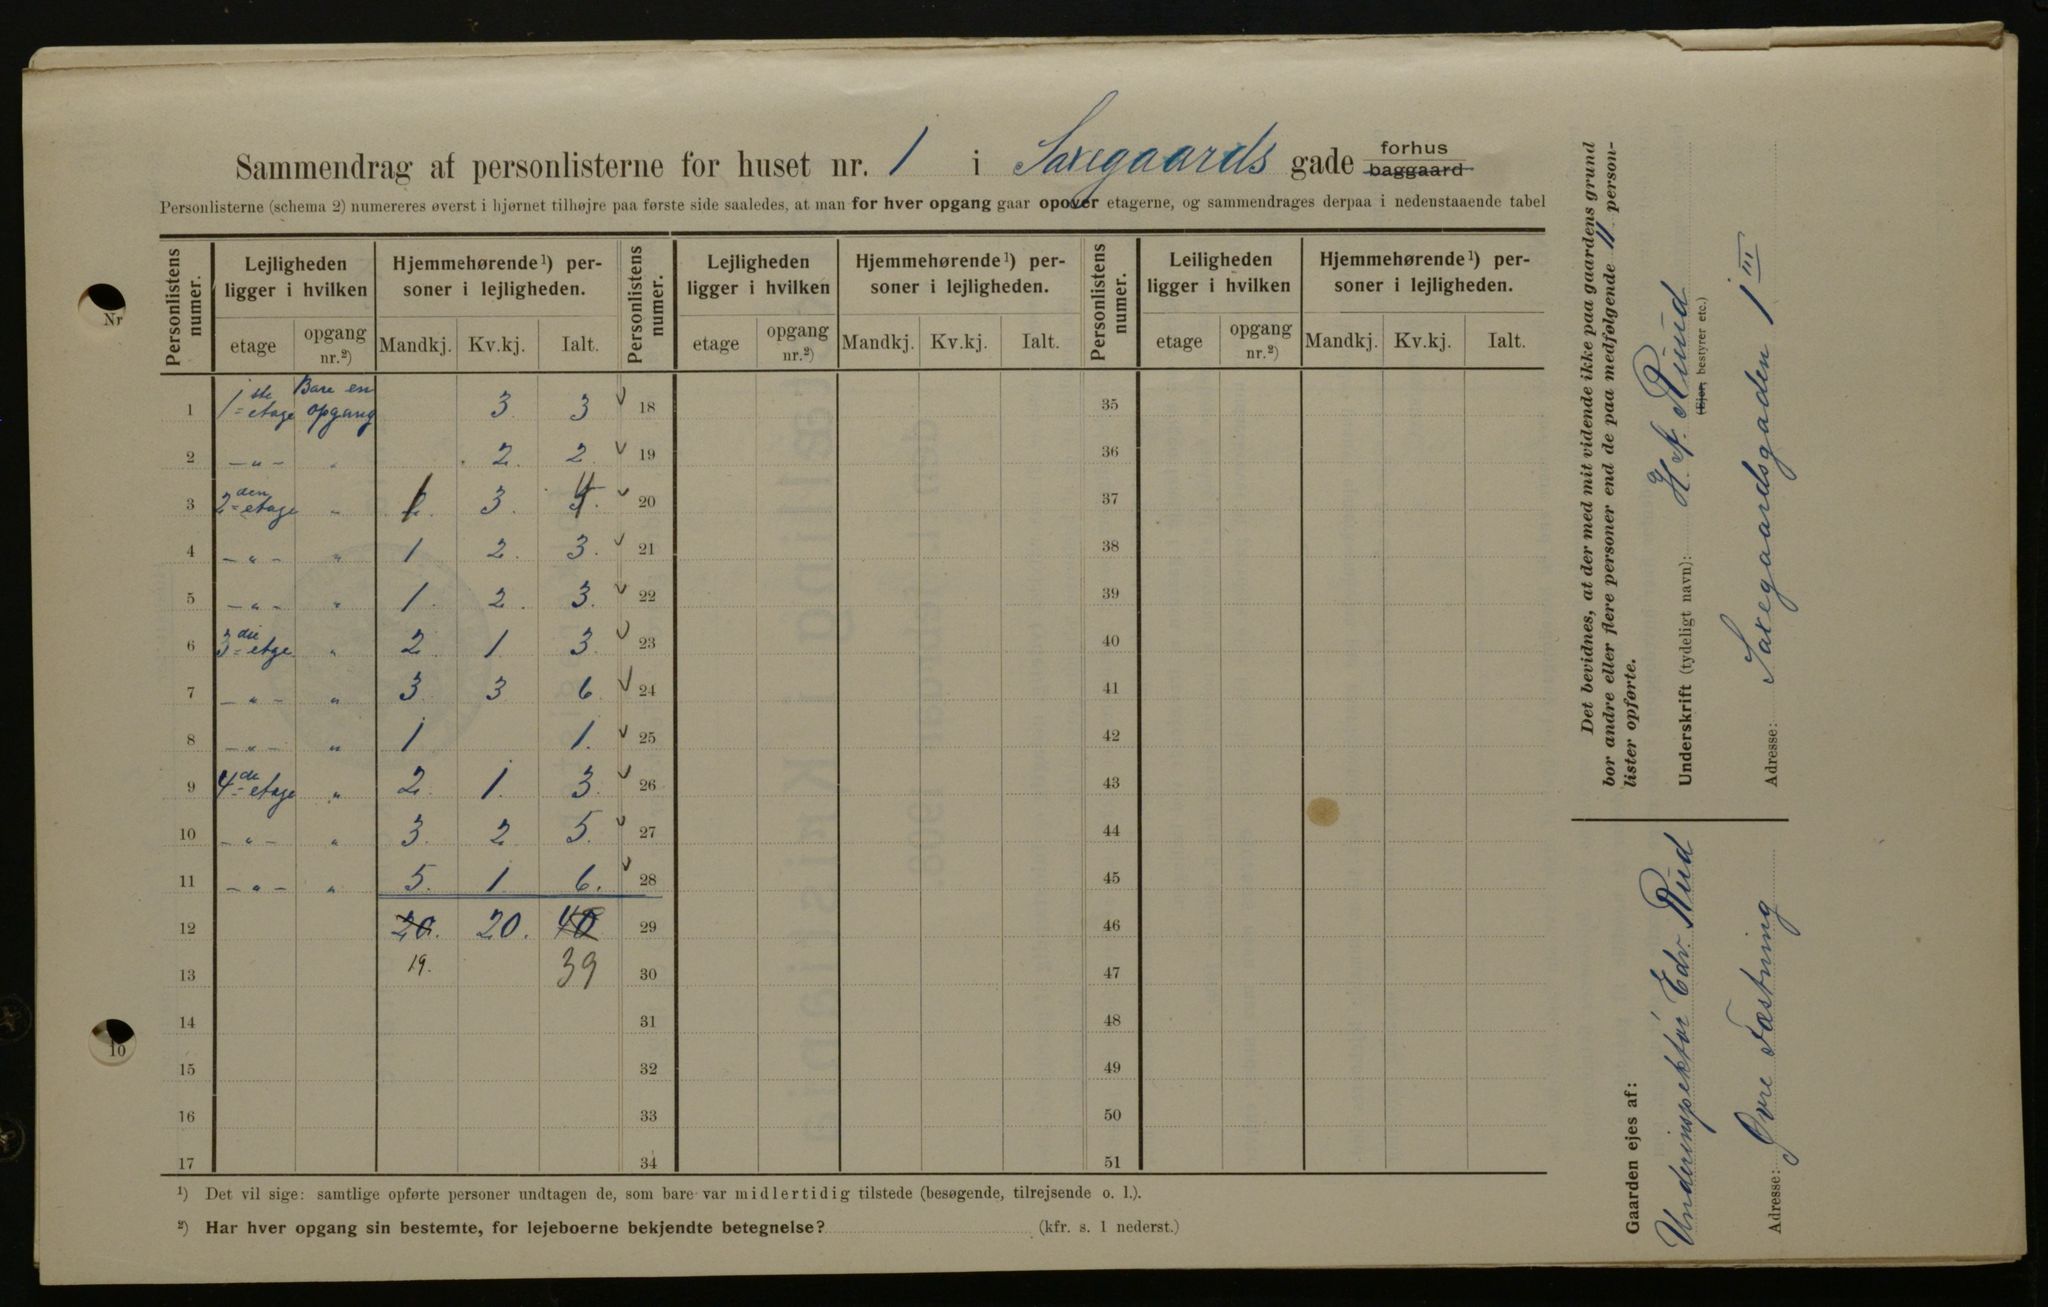 Sammendrag af personlisterne for huset nr. 1 i Saxegaards gade forhus ~~baggaard~~
Personlisterne (schema 2) numereres øverst i hjørnet tilhøjre paa første side saaledes, at man for hver opgang gaar opover etagerne, og sammendrages derpaa i nedenstaaende tabel
Personlistens numer. | Lejligheden ligger i hvilken | Hjemmehørende ¹) personer i lejligheden. | Personlistens numer. | Lejligheden ligger i hvilken | Hjemmehørende ¹) personer i lejligheden. | Personlistens numer. | Leiligheden ligger i hvilken | Hjemmehørende ¹) personer i lejligheden.
etage | opgang nr.²) | Mandkj. | Kv.kj. | Ialt. | etage | opgang nr.²) | Mandkj. | Kv.kj. | Ialt. | etage | opgang nr.²) | Mandkj. | Kv.kj. | Ialt.
1 | 1ste etage | Bare en opgang | | 3 | 3 | 18 | 35
2 | – " – | " | | 2. | 2. | 19 | 36
3 | 2den etage | " | 1 | 3. | 4 | 20 | 37
4 | – " – | " | 1 | 2. | 3. | 21 | 38
5 | – " – | " | 1. | 2. | 3. | 22 | 39
6 | 3die etge | " | 2. | 1. | 3. | 23 | 40
7 | – " – | " | 3. | 3 | 6. | 24 | 41
8 | – " – | " | 1 | | 1. | 25 | 42
9 | 4de etage | " | 2. | 1. | 3. | 26 | 43
10 | – " – | " | 3. | 2 | 5. | 27 | 44
11 | – " – | " | 5. | 1. | 6. | 28 | 45
12 | | | ~~20.~~ | 20. | ~~40~~ | 29 | 46
13 | | | 19. | | 39 | 30 | 47
14 | 31 | 48
15 | 32 | 49
16 | 33 | 50
17 | 34 | 51
¹) Det vil sige: samtlige opførte personer undtagen de, som bare var midlertidig tilstede (besøgende, tilrejsende o. l.).
²) Har hver opgang sin bestemte, for lejeboerne bekjendte betegnelse? (kfr. s. 1 nederst.)
Det bevidnes, at der med mit vidende ikke paa gaardens grund
bor andre eller flere personer end de paa medfølgende 11 person-
lister opførte.
Underskrift (tydeligt navn): H. A. Ruud
(~~Ejer,~~ bestyrer etc.)
Adresse: Saxegaardsgaden 1 III
Gaarden ejes af:
Underinspektør Edv. Ruud
Adresse: Øvre Fæstning
Nr
10